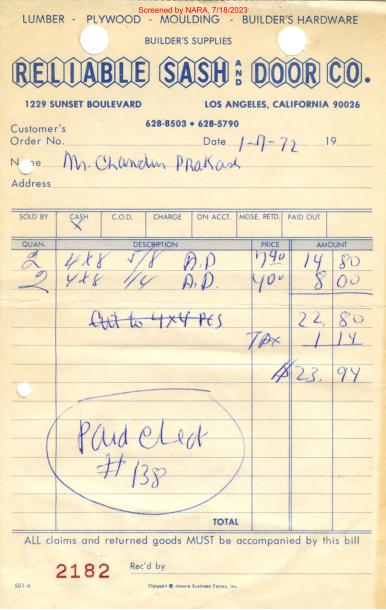 Screened by NARA, 7/18/2023
LUMBER - PLYWOOD - MOULDING - BUILDER'S HARDWARE
BUILDER'S SUPPLIES
RELIABLE SASH AND DOOR CO.
1229 SUNSET BOULEVARD LOS ANGELES, CALIFORNIA 90026
628-8503 • 628-5790
Customer's
Order No. Date 1-17-72 19
Name Mr. Chandra Prakash
Address
SOLD BY CASH C.O.D. CHARGE ON ACCT. MDSE. RETD. PAID OUT
X
QUAN. DESCRIPTION PRICE AMOUNT
2 4x8 5/8 A.D 7 40 14 80
2 4x8 1/4 A.D. 4 00 8 00
Cut to 4x4 Pcs 22 80
TAX 1 14
$ 23. 94
Paid Check
# 138
TOTAL
ALL claims and returned goods MUST be accompanied by this bill
2182 Rec'd by
501-A Flatpakit @ Moore Business Forms, Inc.